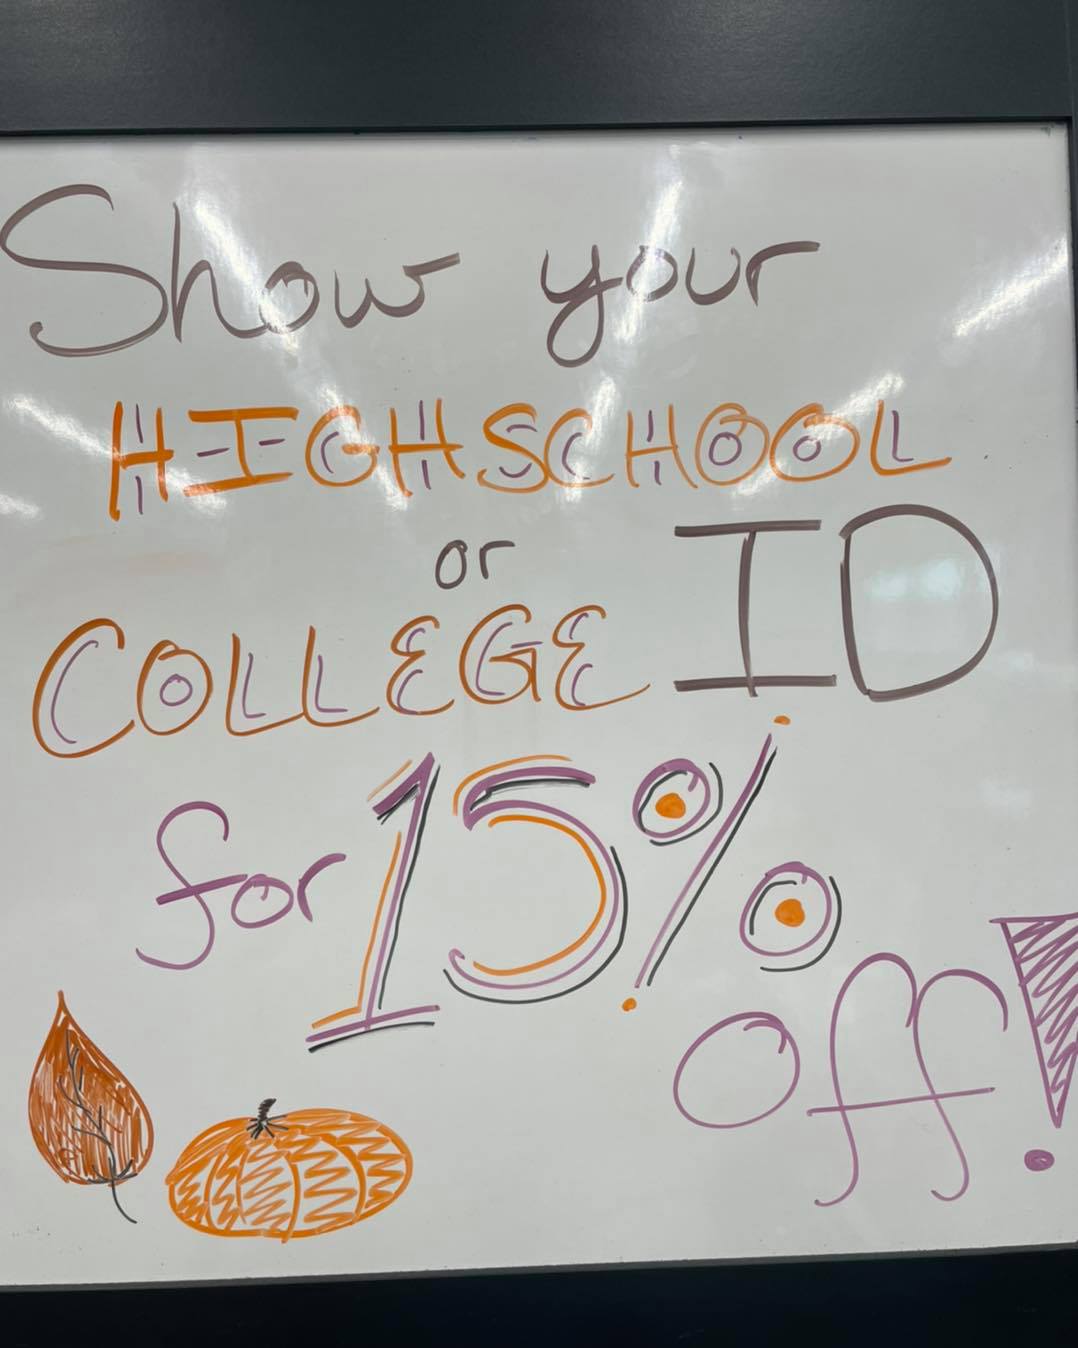 Show your
HIGHSCHOOL
or
COLLEGE ID
for 15%
off!